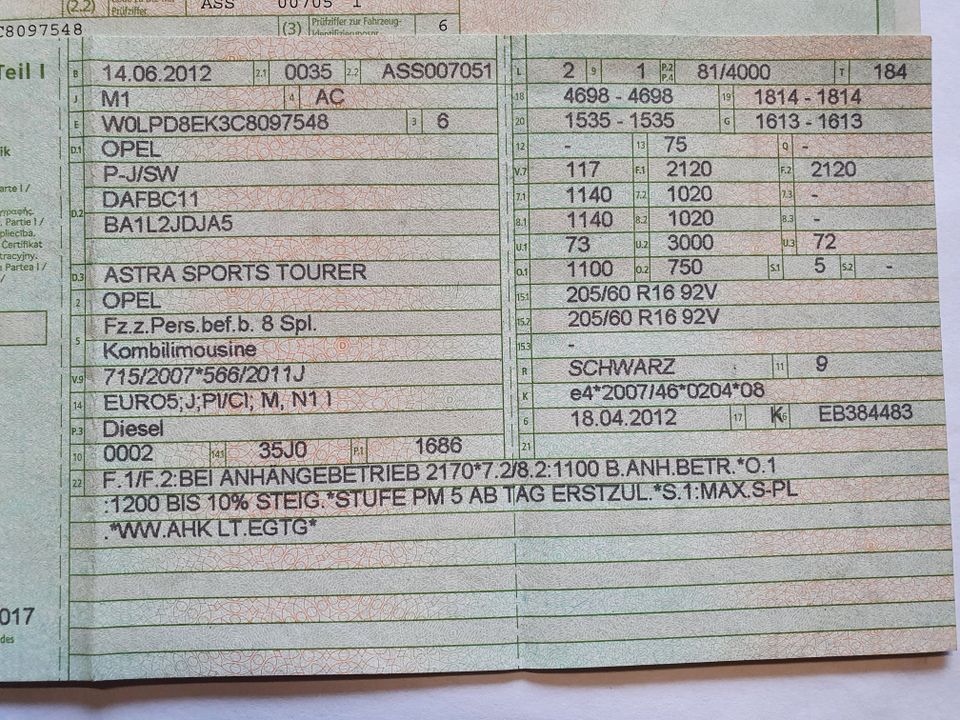 (2.2)
Prüfziffer
ASS 00705 1
C8097548
(3) Prüfziffer zur Fahrzeug-
Identifizierungsnr. 6
Teil I
B 14.06.2012 2.1 0035 2.2 ASS007051 L 2 9 1 P.2 P.4 81/4000 T 184
J M1 4 AC 18 4698 - 4698 19 1814 - 1814
E W0LPD8EK3C8097548 3 6 20 1535 - 1535 G 1613 - 1613
D.1 OPEL 12 - 13 75 Q -
P-J/SW V.7 117 F.1 2120 F.2 2120
D.2 DAFBC11 7.1 1140 7.2 1020 7.3 -
BA1L2JDJA5 8.1 1140 8.2 1020 8.3 -
U.1 73 U.2 3000 U.3 72
D.3 ASTRA SPORTS TOURER O.1 1100 O.2 750 S.1 5 S.2 -
2 OPEL 15.1 205/60 R16 92V
5 Fz.z.Pers.bef.b. 8 Spl. 15.2 205/60 R16 92V
Kombilimousine 15.3 -
V.9 715/2007*566/2011J R SCHWARZ 11 9
14 EURO5;J;PI/CI; M, N1 I K e4*2007/46*0204*08
P.3 Diesel 6 18.04.2012 17 K 16 EB384483
10 0002 14.1 35J0 P.1 1686 21
22 F.1/F.2:BEI ANHÄNGEBETRIEB 2170*7.2/8.2:1100 B.ANH.BETR.*O.1
:1200 BIS 10% STEIG.*STUFE PM 5 AB TAG ERSTZUL.*S.1:MAX.S-PL
.*WW.AHK LT.EGTG*
ik
arte I /
. Partie I /
pliecība.
Certifikat
tracyjny.
e Partea I /
017
des